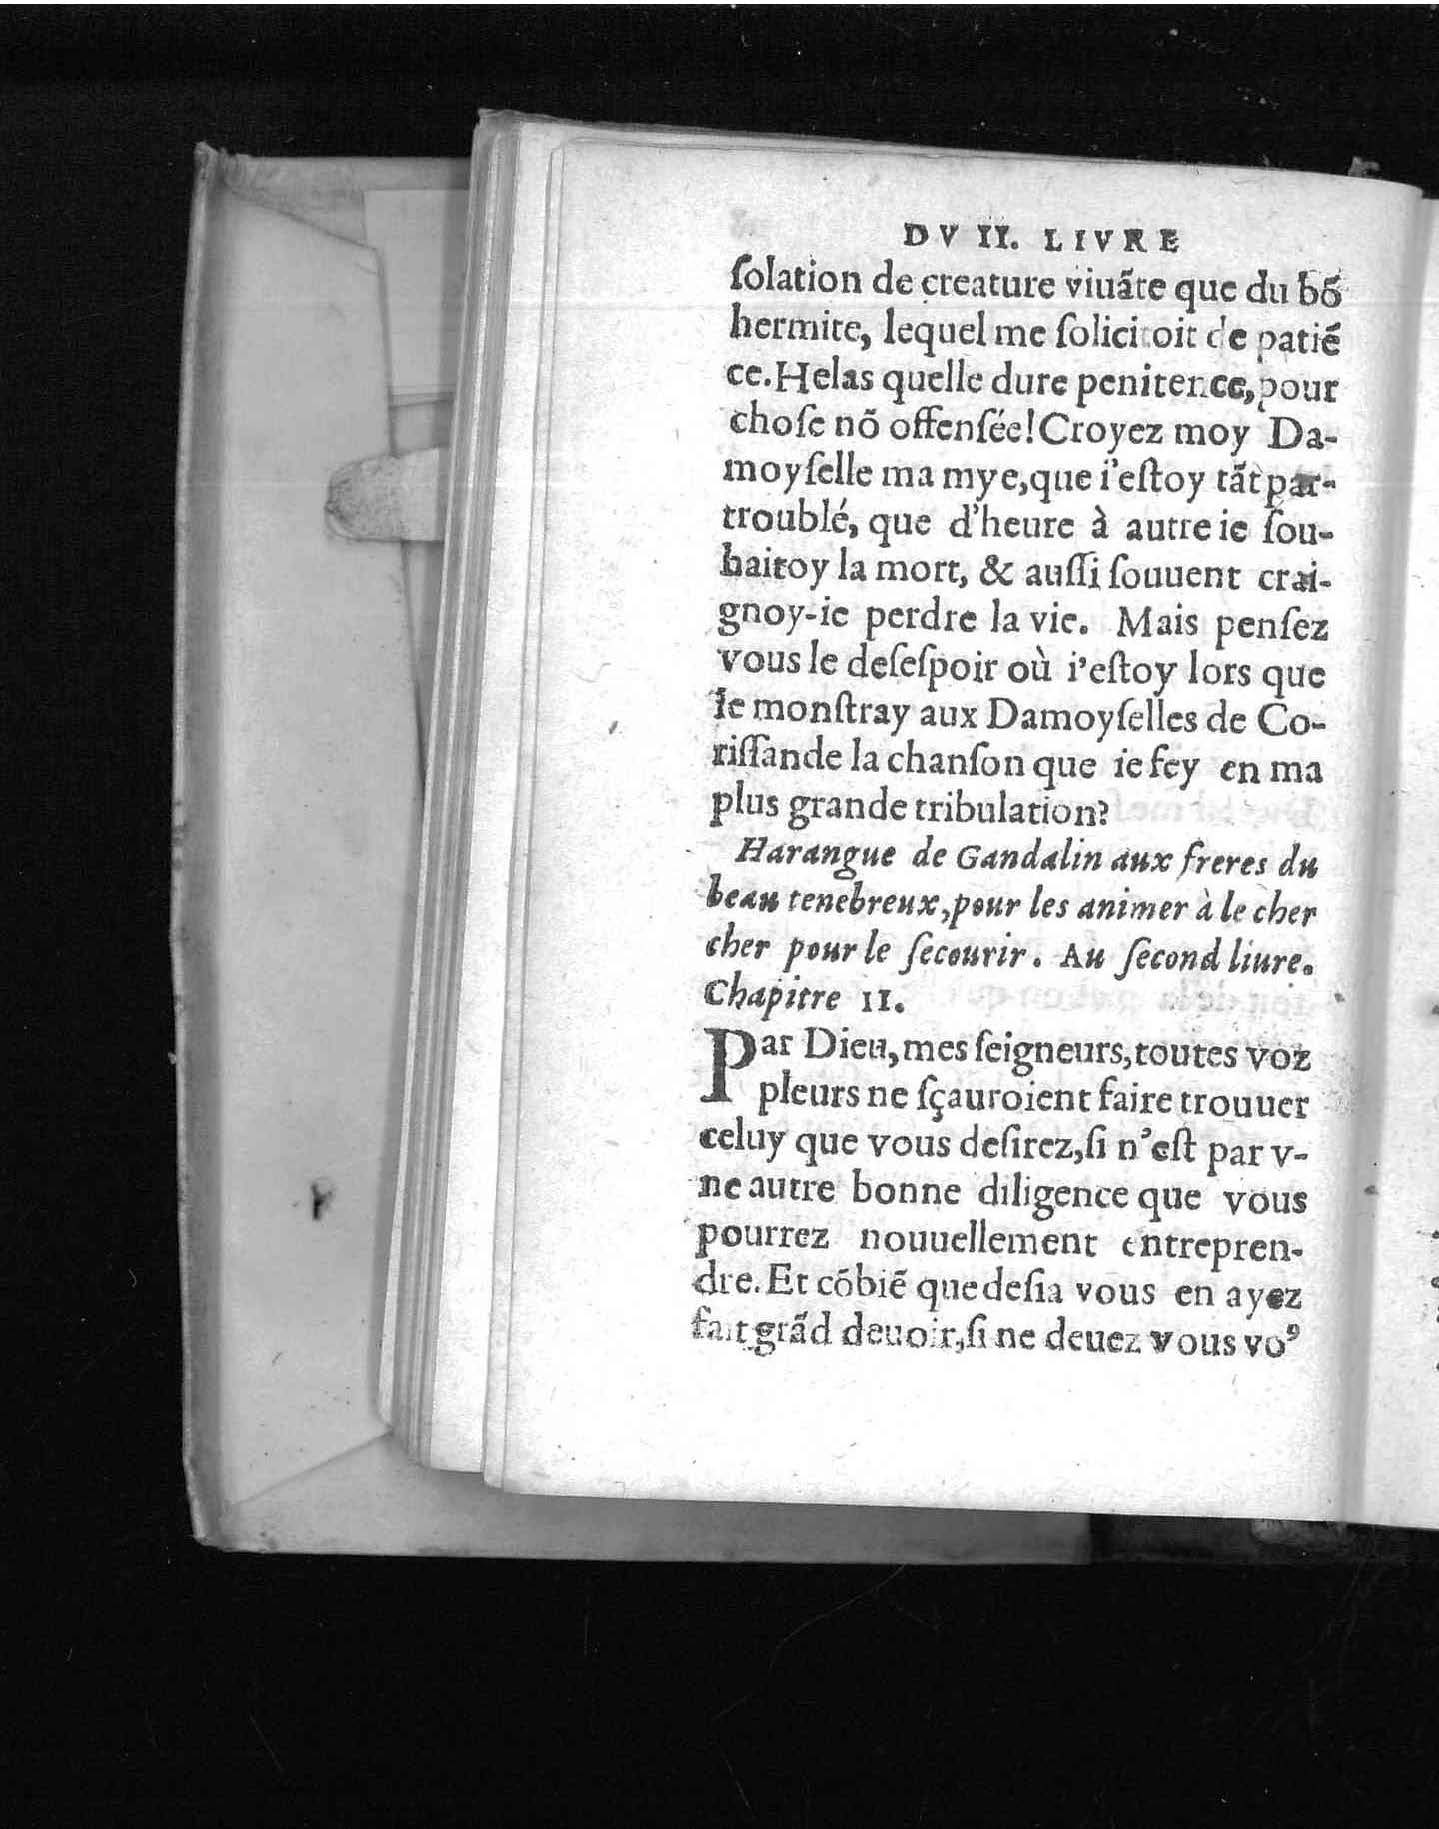 DV II. LIVRE
ſolation de creature viuãte que du bõ
hermite, lequel me ſolicitoit de patiẽ
ce. Helas quelle dure penitence, pour
choſe nõ offenſée! Croyez moy Da-
moyſelle ma mye, que i'eſtoy tãt par-
troublé, que d'heure à autre ie ſou-
haitoy la mort, & auſſi ſouuent crai-
gnoy-ie perdre la vie. Mais penſez
vous le deſeſpoir où i'eſtoy lors que
ie monſtray aux Damoyſelles de Co-
riſſande la chanſon que ie fey en ma
plus grande tribulation?
Harangue de Gandalin aux freres du
beau tenebreux, pour les animer à le cher
cher pour le ſecourir. Au ſecond liure.
Chapitre II.
Par Dieu, mes ſeigneurs, toutes voz
pleurs ne ſçauroient faire trouuer
celuy que vous deſirez, ſi n'eſt par v-
ne autre bonne diligence que vous
pourrez nouuellement entrepren-
dre. Et cõbiẽ que deſia vous en ayez
fait grãd deuoir, ſi ne deuez vous voꝰ